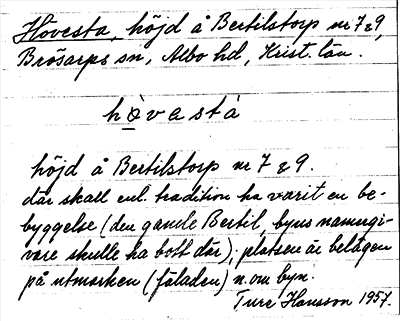 Hovesta, höjd å Bertilstorp nr 7 & 9,
Brösarps sn, Albo hd, Krist. län.
hò̱vastà
höjd å Bertilstorp nr 7 & 9.
där skall enl. tradition ha varit en be-
byggelse (den gamle Bertil, byns namngi-
vare skulle ha bott där); platsen är belägen
på utmarken (fäladen) n.om byn.
Ture Hansson 1957.